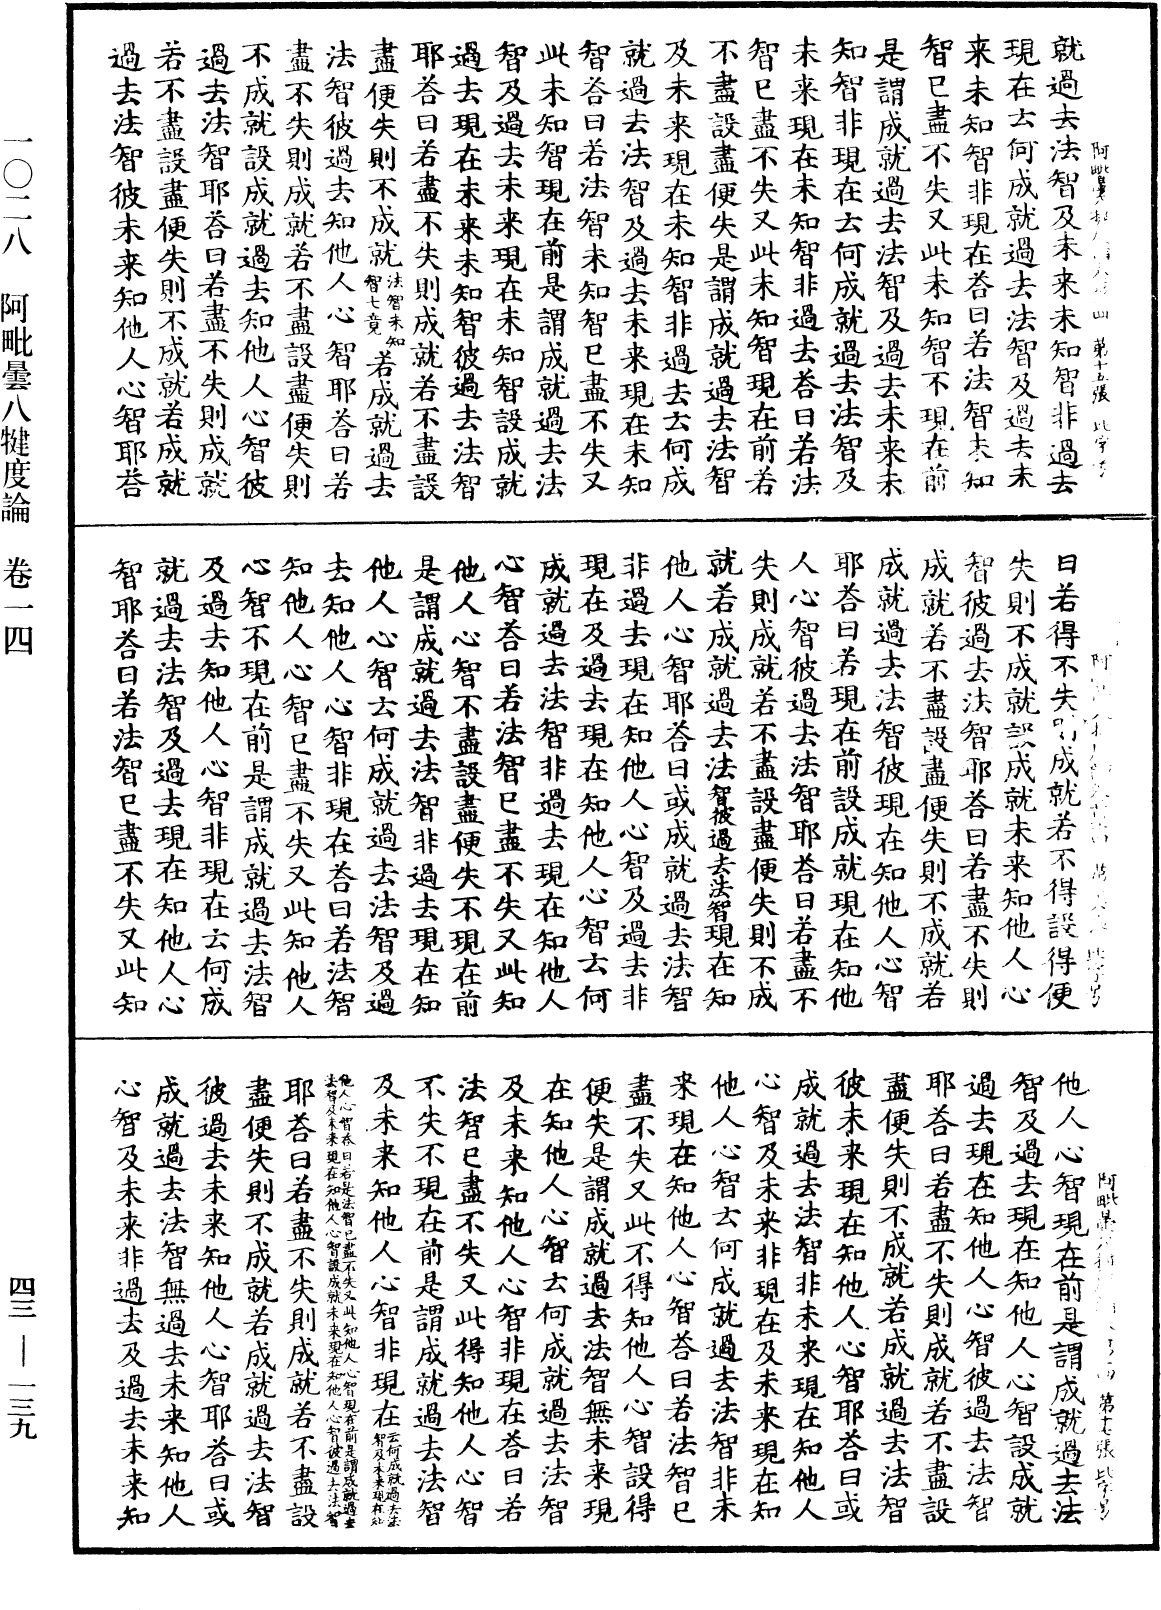 就過去法智及未来未知智非過去
現在云何成就過去法智及過去未
来未知智非現在荅曰若法智未知
智已盡不失又此未知智不現在前
是謂成就過去法智及過去未来未
知智非現在云何成就過去法智及
未来現在未知智非過去荅曰若法
智已盡不失又此未知智現在前若
不盡設盡便失是謂成就過去法智
及未来現在未知智非過去云何成
就過去法智及過去未来現在未知
智荅曰若法智未知智已盡不失又
此未知智現在前是謂成就過去法
智及過去未来現在未知智設成就
過去現在未来未知智彼過去法智
耶荅曰若盡不失則成就若不盡設
盡便失則不成就法智未知智七竟若成就過去
法智彼過去知他人心智耶荅曰若
盡不失則成就若不盡設盡便失則
不成就設成就過去知他人心智彼
過去法智耶荅曰若盡不失則成就
若不盡設盡便失則不成就若成就
過去法智彼未来知他人心智耶荅
曰若得不失則成就若不得設得便
失則不成就設成就未来知他人心
智彼過去法智耶荅曰若盡不失則
成就若不盡設盡便失則不成就若
成就過去法智彼現在知他人心智
耶荅曰若現在前設成就現在知他
人心智彼過去法智耶荅曰若盡不
失則成就若不盡設盡便失則不成
就若成就過去法智彼過去法智現在知
他人心智耶荅曰或成就過去法智
非過去現在知他人心智及過去非
現在及過去現在知他人心智云何
成就過去法智非過去現在知他人
心智荅曰若法智已盡不失又此知
他人心智不盡設盡便失不現在前
是謂成就過去法智非過去現在知
他人心智云何成就過去法智及過
去知他人心智非現在荅曰若法智
知他人心智已盡不失又此知他人
心智不現在前是謂成就過去法智
及過去知他人心智非現在云何成
就過去法智及過去現在知他人心
智耶荅曰若法智已盡不失又此知
他人心智現在前是謂成就過去法
智及過去現在知他人心智設成就
過去現在知他人心智彼過去法智
耶荅曰若盡不失則成就若不盡設
盡便失則不成就若成就過去法智
彼未来現在知他人心智耶荅曰或
成就過去法智非未来現在知他人
心智及未来非現在及未来現在知
他人心智云何成就過去法智非未
来現在知他人心智荅曰若法智已
盡不失又此不得知他人心智設得
便失是謂成就過去法智無未来現
在知他人心智云何成就過去法智
及未来知他人心智非現在荅曰若
法智已盡不失又此得知他人心智
不失不現在前是謂成就過去法智
及未来知他人心智非現在云何成就過去法智及未来現在知
他人心智荅曰若是法智已盡不失又此知他人心智現在前是謂成就過去法智及未来現在知他人心智設成就未来現在知他人心智彼過去法智
耶荅曰若盡不失則成就若不盡設
盡便失則不成就若成就過去法智
彼過去未来知他人心智耶荅曰或
成就過去法智無過去未来知他人
心智及未来非過去及過去未来知
一〇二八 阿毗曇八犍度論 卷一四
四三—一三九